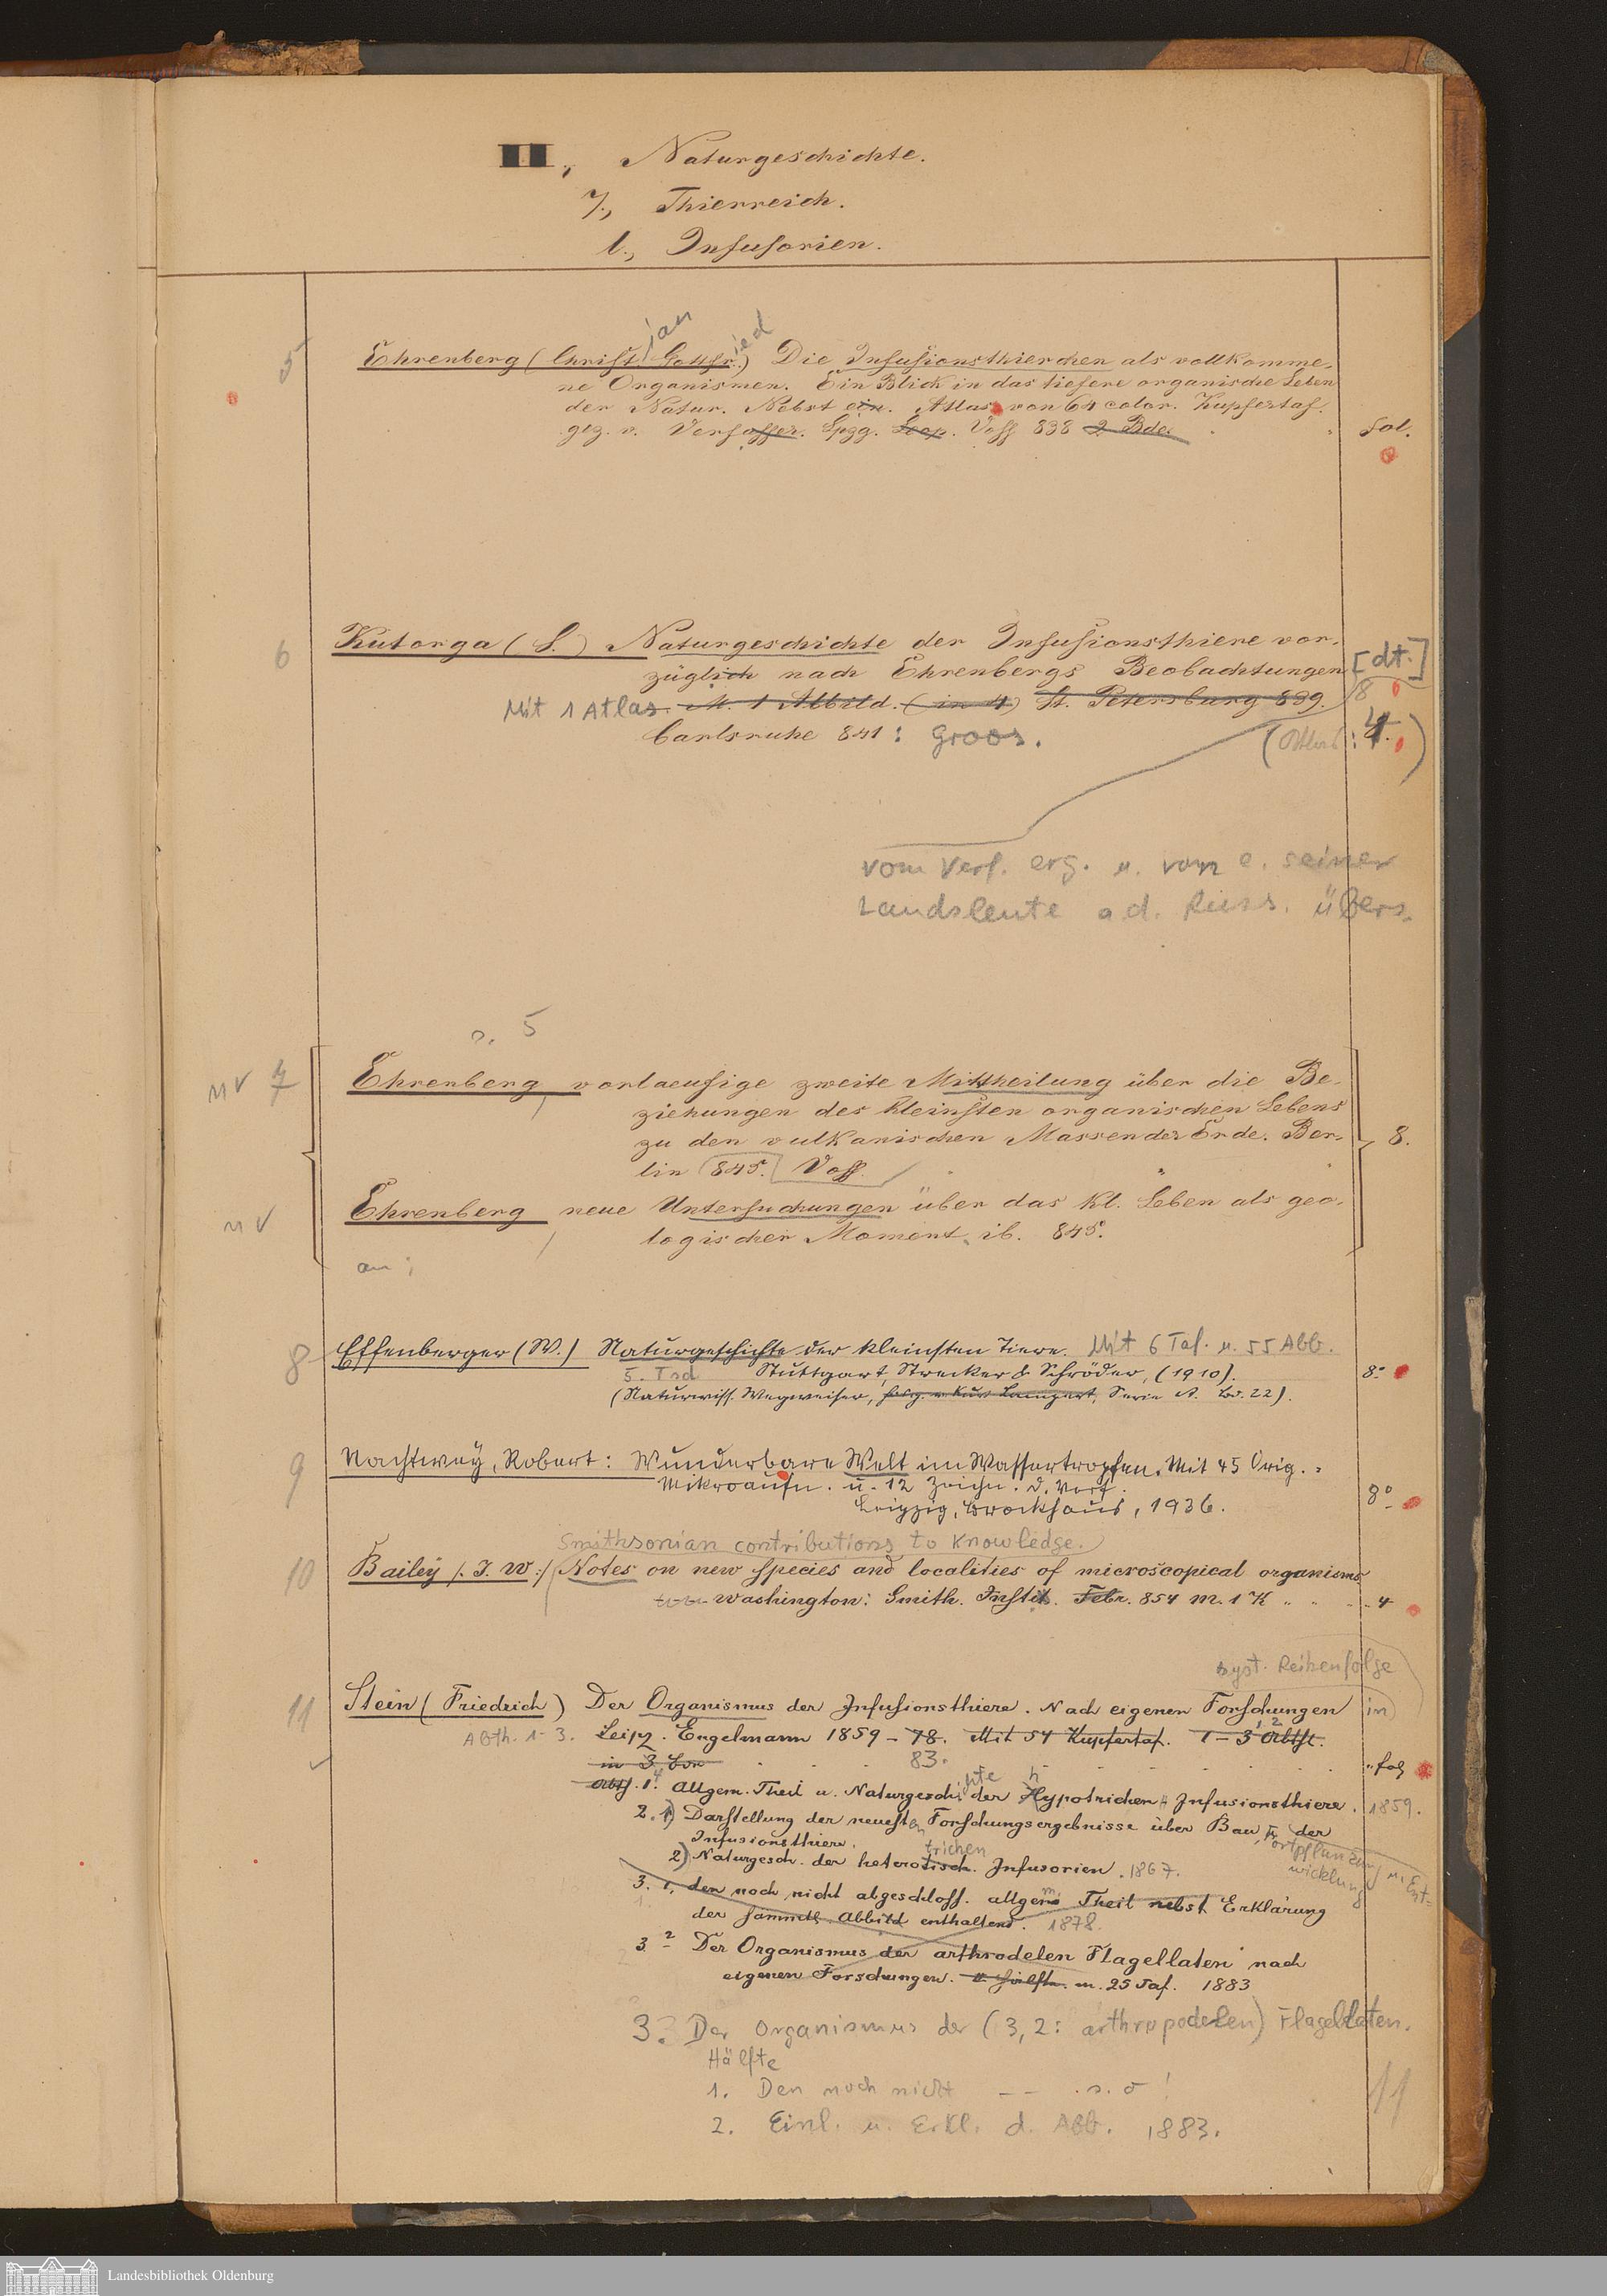 II, Naturgeschichte.
7., Thierreich.
l., Infusorien.
5 Ehrenberg (Christ. Gottfr.) Die Infusionsthierchen als vollkomme-
jan ied
ne Organismen. Ein Blick in das tiefere organische Leben
der Natur. Nebst ein. Atlas von 64 color. Kupfertaf.
gez. v. Verfasser. Lpzg. Leop. Voss 838 2 Bde. fol.
6 Kutorga (S.) Naturgeschichte der Infusionsthiere vor-
züglich nach Ehrenbergs Beobachtungen [dt.]
Mit 1 Atlas. M. 1 Abbild. (in 4) St. Petersburg 839. 8
Carlsruhe 841: Groos. (Atlas: 4.)
vom Verf. erg. u. von e. seiner
Landsleute a.d. Russ. übers.
s. 5
7 Ehrenberg, vorlaeufige zweite Mittheilung über die Be-
ziehungen des kleinsten organischen Lebens
zu den vulkanischen Massen der Erde. Ber- 8.
lin 845. Voss.
Ehrenberg, neue Untersuchungen über das kl. Leben als geo-
logischer Moment. ib. 845.
an;
8 Effenberger (W.) Naturgeschichte der kleinsten Tiere. Mit 6 Taf. u. 55 Abb.
5. Tsd Stuttgart, Strecker & Schröder, (1910). 8°
(Naturwiss. Wegweiser, hrsg. v. Kurt Lampert, Serie A. Bd. 22).
9 Nachtwey, Robert: Wunderbare Welt im Wassertropfen. Mit 45 Orig.-
Mikroaufn. u. 12 Zeichn. d. Verf.
Leipzig, Brockhaus, 1936. 8°
Smithsonian contributions to Knowledge.
10 Bailey /: J. W :/ Notes on new species and localities of microscopical organisms
Washington: Smith. Instit. Febr. 854 m. 1 K 4
syst. Reihenfolge
11 Stein (Friedrich) Der Organismus der Infusionsthiere. Nach eigenen Forschungen in
Abth. 1-3. Leipz. Engelmann 1859-78. Mit 54 Kupfertaf. 1-3 Abth.
in 3 Bdn 83. fol
Abth. 1. Allgem. Theil u. Naturgesch. der Hypotrichen Infusionsthiere. 1859.
2. 1) Darstellung der neuesten Forschungsergebnisse über Bau, der
Fortpflanzung u. Ent-
wicklung
Infusionsthiere.
trichen
2) Naturgesch. der heterotisch. Infusorien. 1867.
3. 1. den noch nicht abgeschloss. allgem. Theil nebst Erklärung
der sämmtl. Abbild enthaltend. 1878.
3 2 Der Organismus der arthrodelen Flagellaten nach
eigenen Forschungen. II Hälfte. m. 25 Taf. 1883
3. Der Organismus der (3, 2: arthropodelen) Flagellaten.
Hälfte
1. Den noch nicht -- . s. o!
2. Einl. u. Erkl. d. Abb. 1883.
11
Landesbibliothek Oldenburg